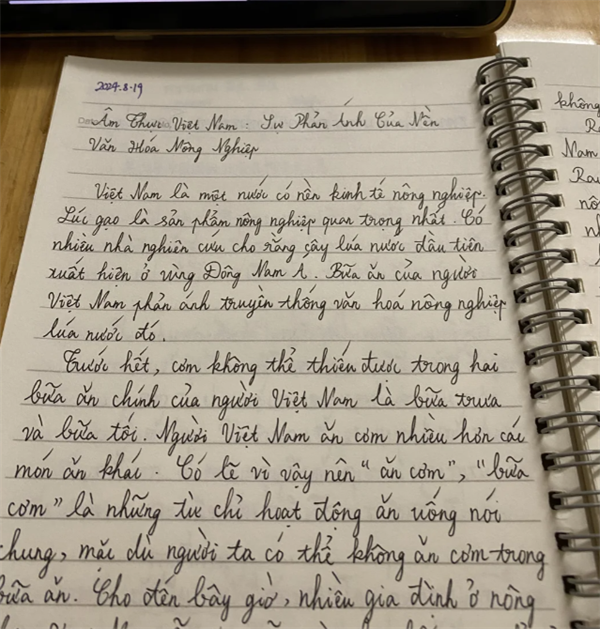 2024.8.19
Âm Thưc Việt Nam : Sư Phản Ánh Của Nền
Văn Hóa Nông Nghiệp
Việt Nam là một nước có nền kinh tế nông nghiệp.
Lúc gạo là sản phẩm nông nghiệp quan trọng nhất. Có
nhiều nhà nghiên cưu cho rằng cây lúa nước đầu tiên
xuất hiện ở vùng Đông Nam Á. Bữa ăn của người
Việt Nam phản ánh truyền thống văn hoá nông nghiệp
lúa nước đó.
Trước hết, cơm không thể thiếu đươc trong hai
bữa ăn chính của người Việt Nam là bữa trưa
và bữa tối. Người Việt Nam ăn cơm nhiều hơn các
món ăn khác. Có lẽ vì vậy nên "ăn cơm", "bữa
cơm" là những từ chỉ hoạt động ăn uống nói
chung, mặc dù người ta có thể không ăn cơm trong
bữa ăn. Cho đến bây giờ, nhiều gia đình ở nông
không
Ra
Nam
Rau
nô